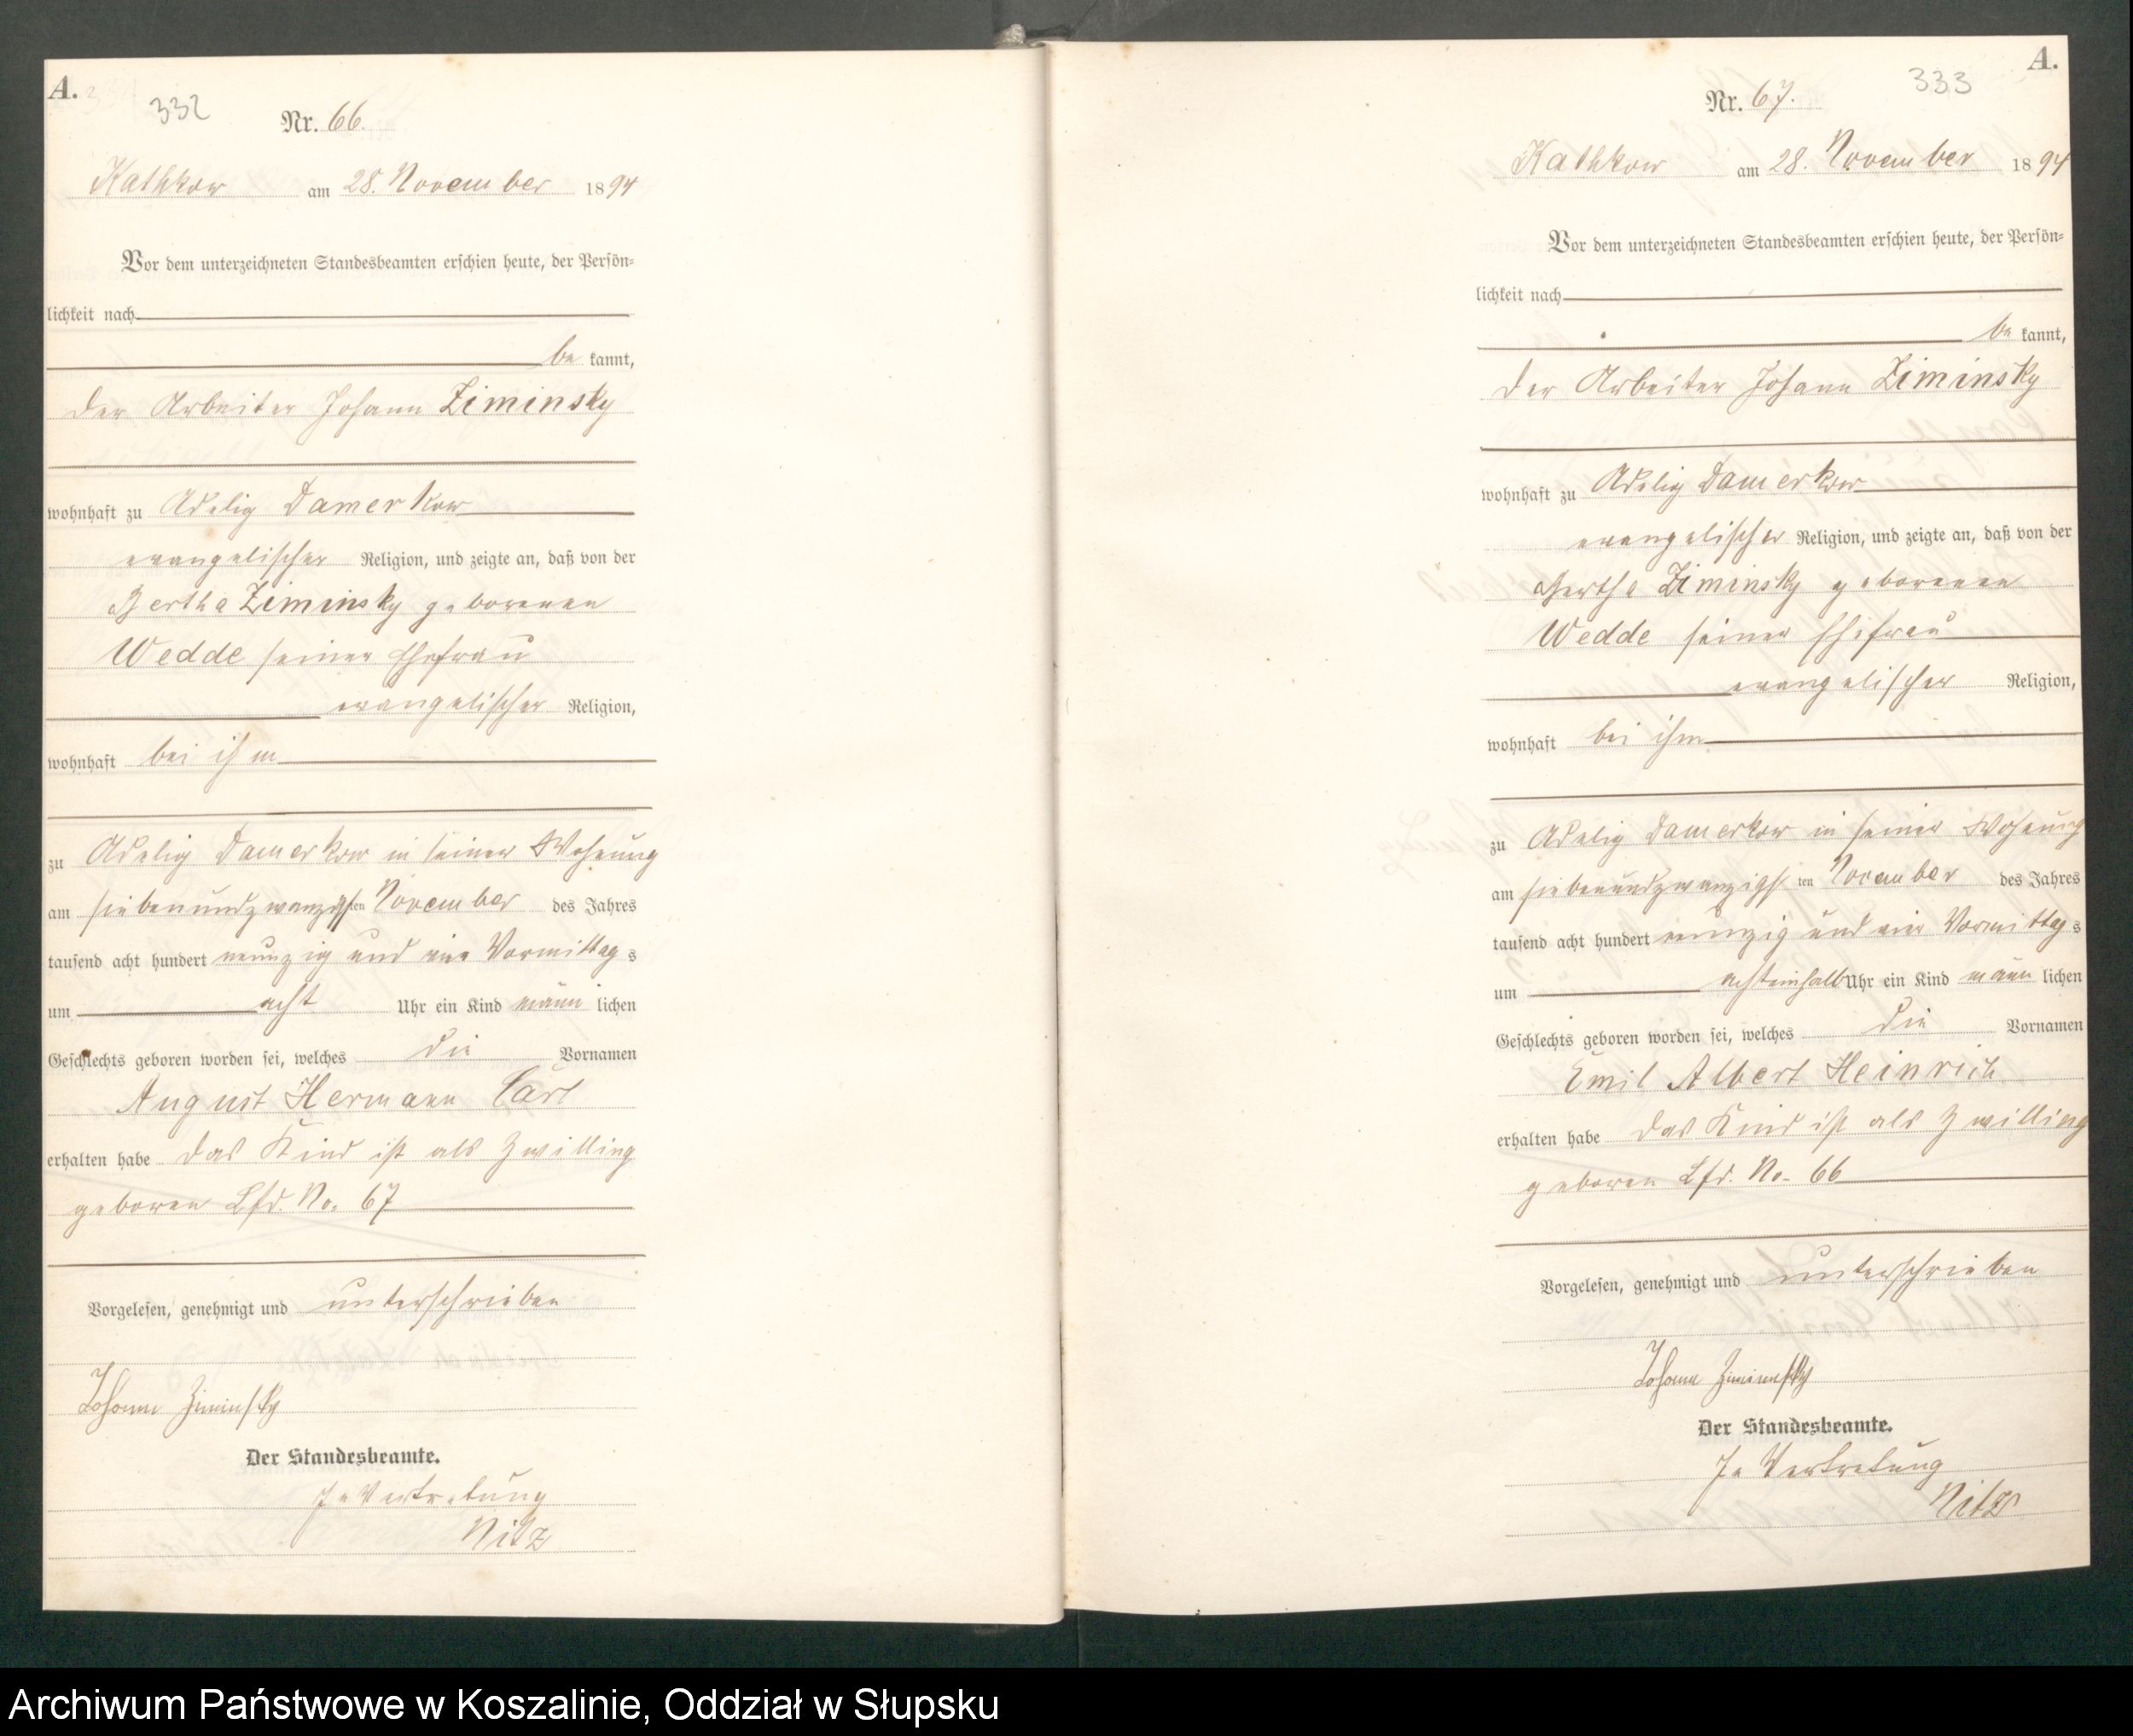 A.
332
Nr. 66.
Kathkow am 28. November 1894
Vor dem unterzeichneten Standesbeamten erschien heute, der Persön-
lichkeit nach
be kannt,
der Arbeiter Johann Ziminsky
wohnhaft zu Adelig Damerkow
evangelischer Religion, und zeigte an, daß von der
Bertha Ziminsky geborenen
Wedde seiner Ehefrau
evangelischer Religion,
wohnhaft bei ihm
zu Adelig Damerkow in seiner Wohnung
am siebenundzwanzigsten November des Jahres
tausend acht hundert neunzig und vier Vormittag s
um acht Uhr ein Kind männ lichen
Geschlechts geboren worden sei, welches die Vornamen
August Hermann Carl
erhalten habe das Kind ist als Zwilling
geboren Lfd. No. 67
Vorgelesen, genehmigt und unterschrieben
Johann Ziminsky
Der Standesbeamte.
In Vertretung
Nitz
A.
333
Nr. 67.
Kathkow am 28. November 1894
Vor dem unterzeichneten Standesbeamten erschien heute, der Persön-
lichkeit nach
be kannt,
der Arbeiter Johann Ziminsky
wohnhaft zu Adelig Damerkow
evangelischer Religion, und zeigte an, daß von der
Bertha Ziminsky geborenen
Wedde seiner Ehefrau
evangelischer Religion,
wohnhaft bei ihm
zu Adelig Damerkow in seiner Wohnung
am siebenundzwanzigs ten November des Jahres
tausend acht hundert neunzig und vier Vormittag s
um achteinhalb Uhr ein Kind männ lichen
Geschlechts geboren worden sei, welches die Vornamen
Emil Albert Heinrich
erhalten habe das Kind ist als Zwilling
geboren Lfd. No. 66
Vorgelesen, genehmigt und unterschrieben
Johann Ziminsky
Der Standesbeamte.
In Vertretung
Nitz
Archiwum Państwowe w Koszalinie, Oddział w Słupsku